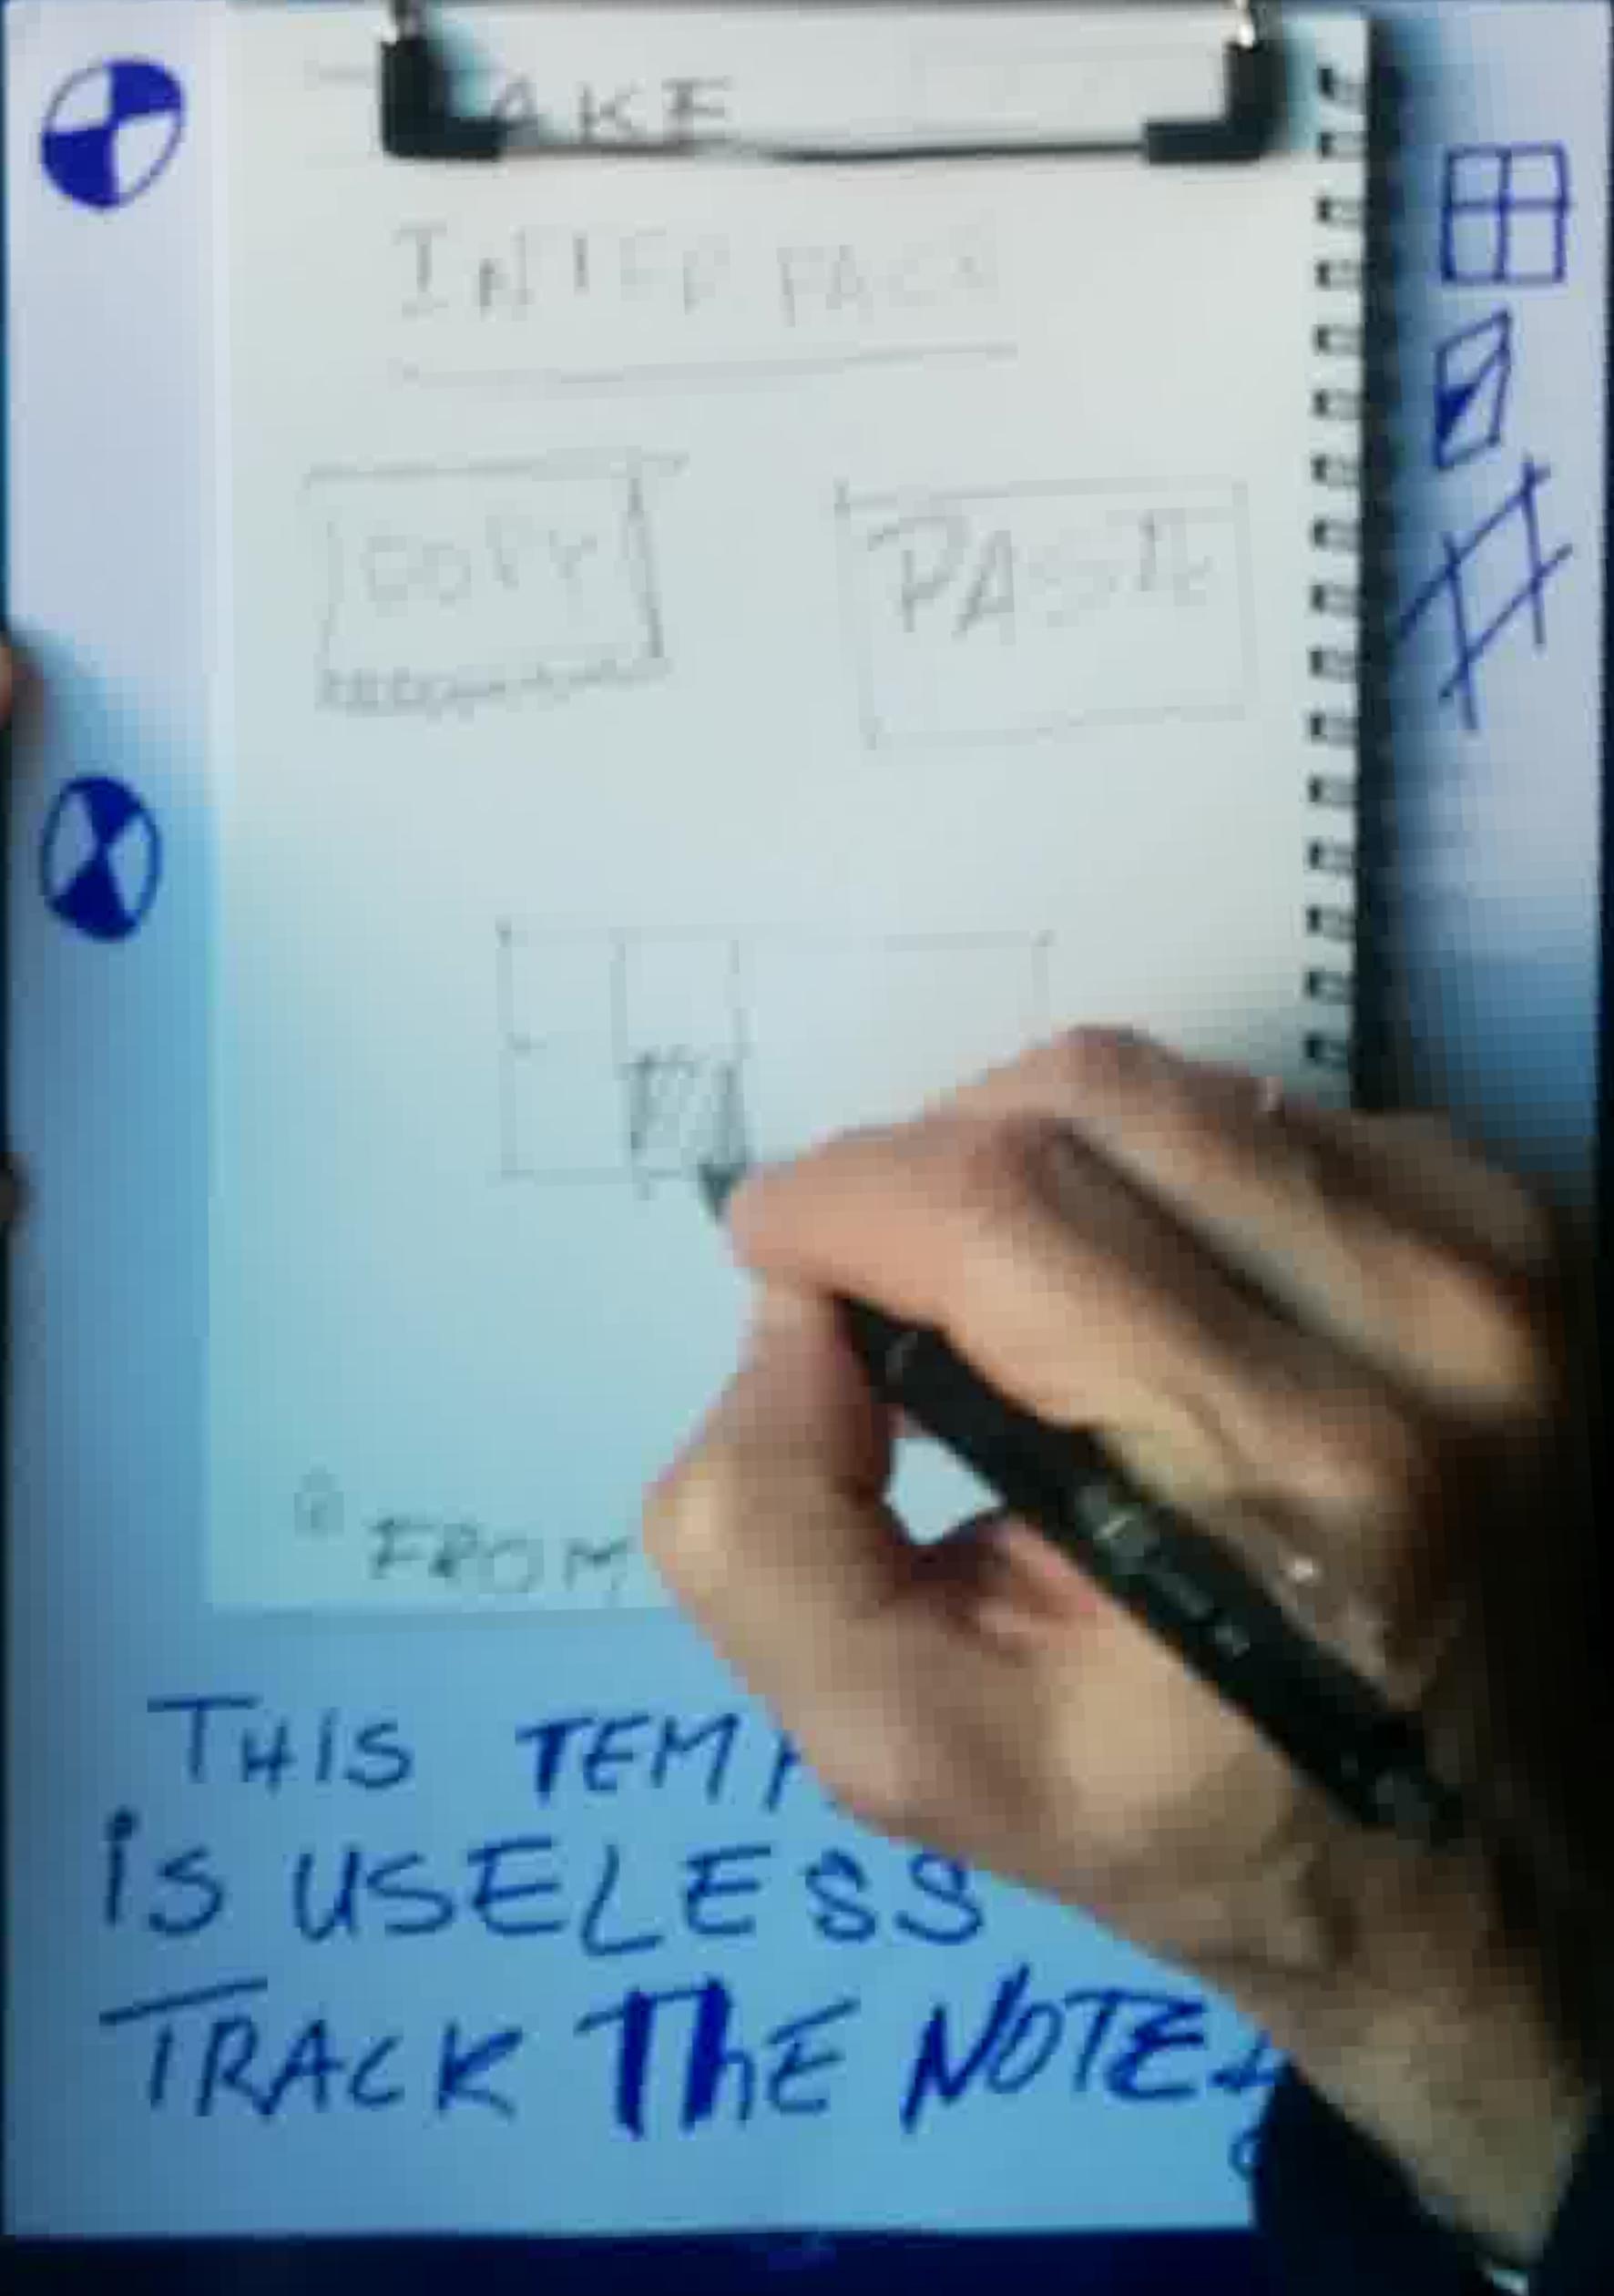 AKE
INTERFACE
COPY PASTE
FROM
THIS TEMP
is USELESS
TRACK THE NOTE